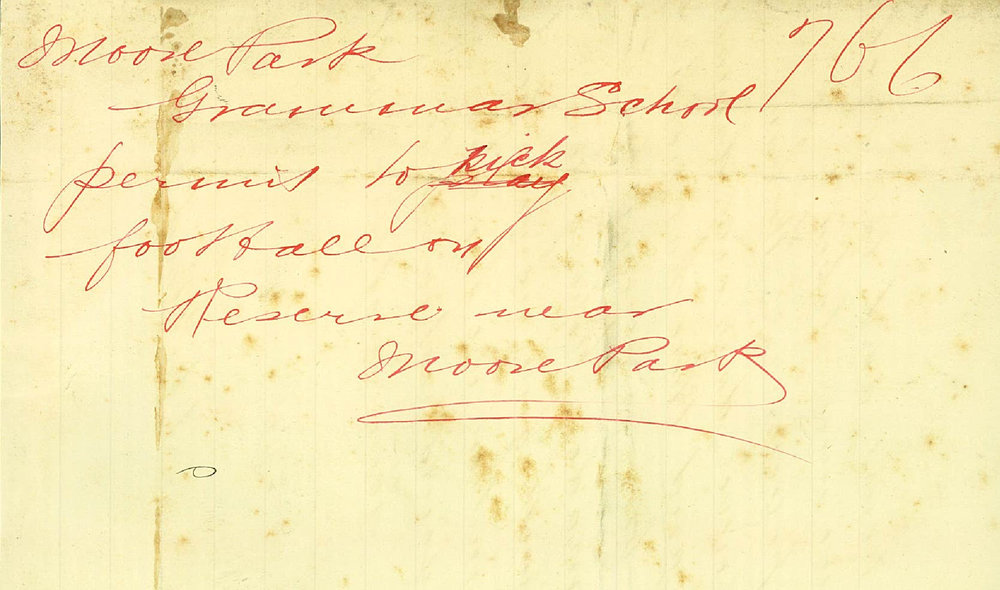 Moore Park 766
Grammar School
permit to kick play
football on
Reserve near
Moore Park